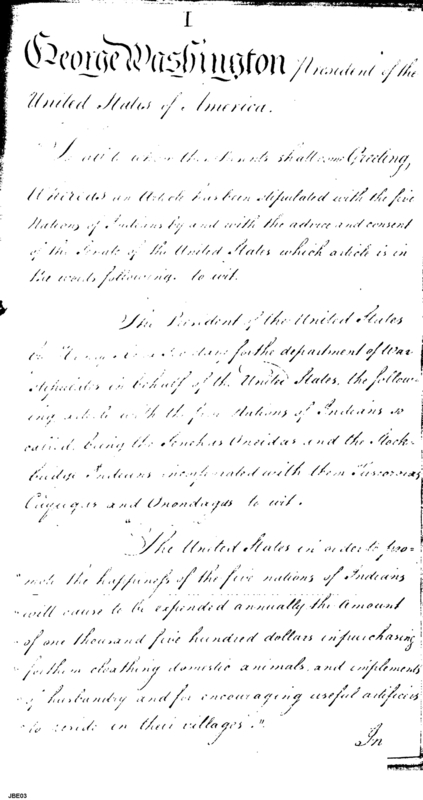 I
George Washington President of the
United States of America.
To all to whom these Presents shall come Greeting,
Whereas an Article has been stipulated with the five
Nations of Indians by and with the advice and consent
of the Senate of the United States which article is in
the words following. to wit.
The President of the United States
by Henry Knox Secretary for the department of War
stipulates in behalf of the United States, the follow-
ing article with the five Nations of Indians so
called, being the Senekas Oneidas and the Stock-
bridge Indians incorporated with them Tuscaroras
Cayugas and Onondagas to wit.
"The United States in order to pro=
"mote the happiness of the five nations of Indians
"will cause to be expended annually the Amount
"of one thousand five hundred dollars in purchasing
"for them cloathing domestic animals and implements
"of husbandry and for encouraging useful artificers
"to reside in their villages."
In
JBE03